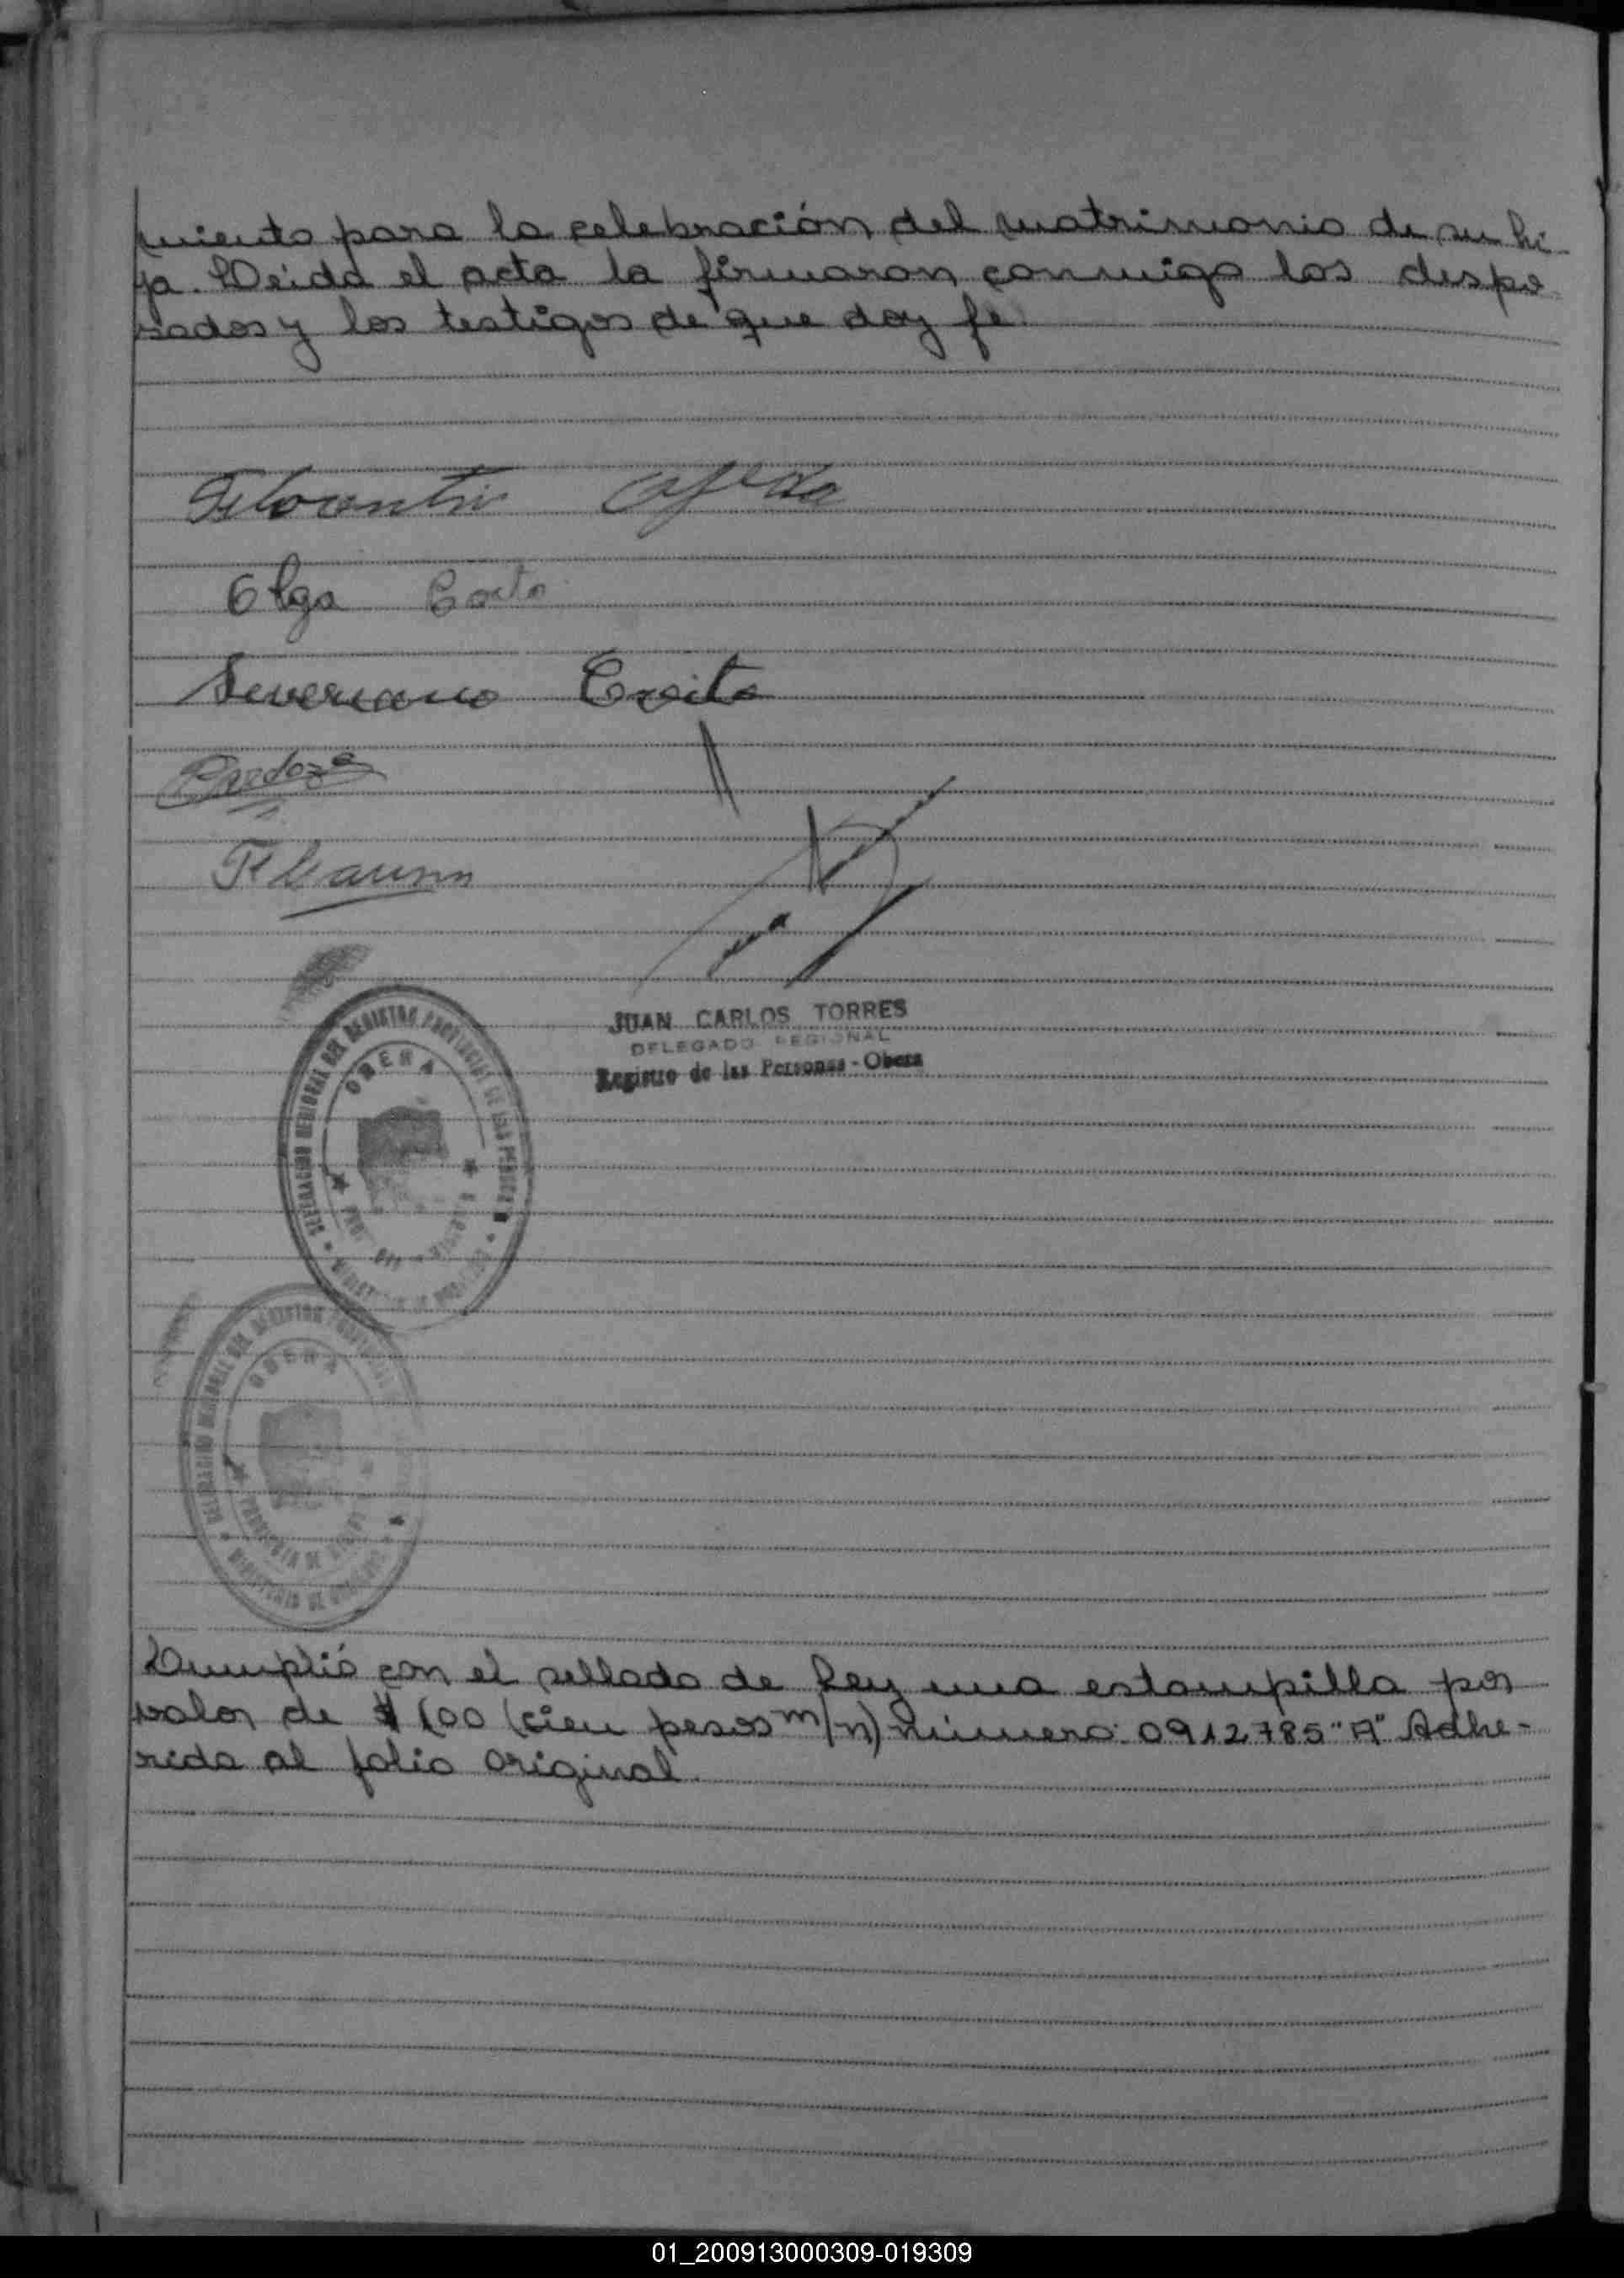 miento para la celebración del matrimonio de su hi-
ja. Leída el acta la firmaron conmigo los despo-
sados y los testigos de que doy fe.
Florentin
Olga
Severiano
Cardozo
JUAN CARLOS TORRES
DELEGADO REGIONAL
Registro de las Personas - Obera
DELEGACION REGIONAL DEL REGISTRO PROVINCIAL DE LAS PERSONAS
OBERA
DELEGACION REGIONAL DEL REGISTRO
OBERA
PROVINCIA DE
MINISTERIO DE GOBIERNO
Cumplió con el sellado de Ley una estampilla por
valor de $ 100 (cien pesos m/n) número: 0912785 "A" Adhe-
rida al folio original.
01_200913000309-019309